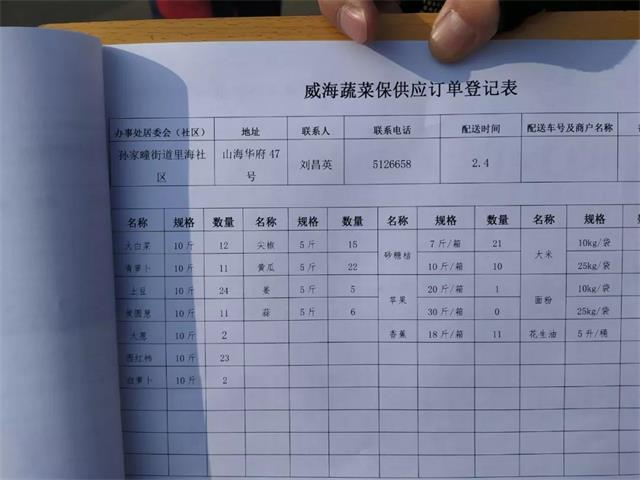 威海蔬菜保供应订单登记表
办事处居委会（社区） 地址 联系人 联系电话 配送时间 配送车号及商户名称
孙家疃街道里海社区 山海华府 47号 刘昌英 5126658 2.4
名称 规格 数量 名称 规格 数量 名称 规格 数量 名称 规格
大白菜 10 斤 12 尖椒 5 斤 15 砂糖桔 7 斤/箱 21 大米 10kg/袋
青萝卜 10 斤 11 黄瓜 5 斤 22 10 斤/箱 10 25kg/袋
土豆 10 斤 24 姜 5 斤 5 苹果 20 斤/箱 1 面粉 10kg/袋
圆葱 10 斤 11 蒜 5 斤 6 30 斤/箱 0 25kg/袋
大葱 10 斤 2 香蕉 18 斤/箱 11 花生油 5 升/桶
西红柿 10 斤 23
白萝卜 10 斤 2